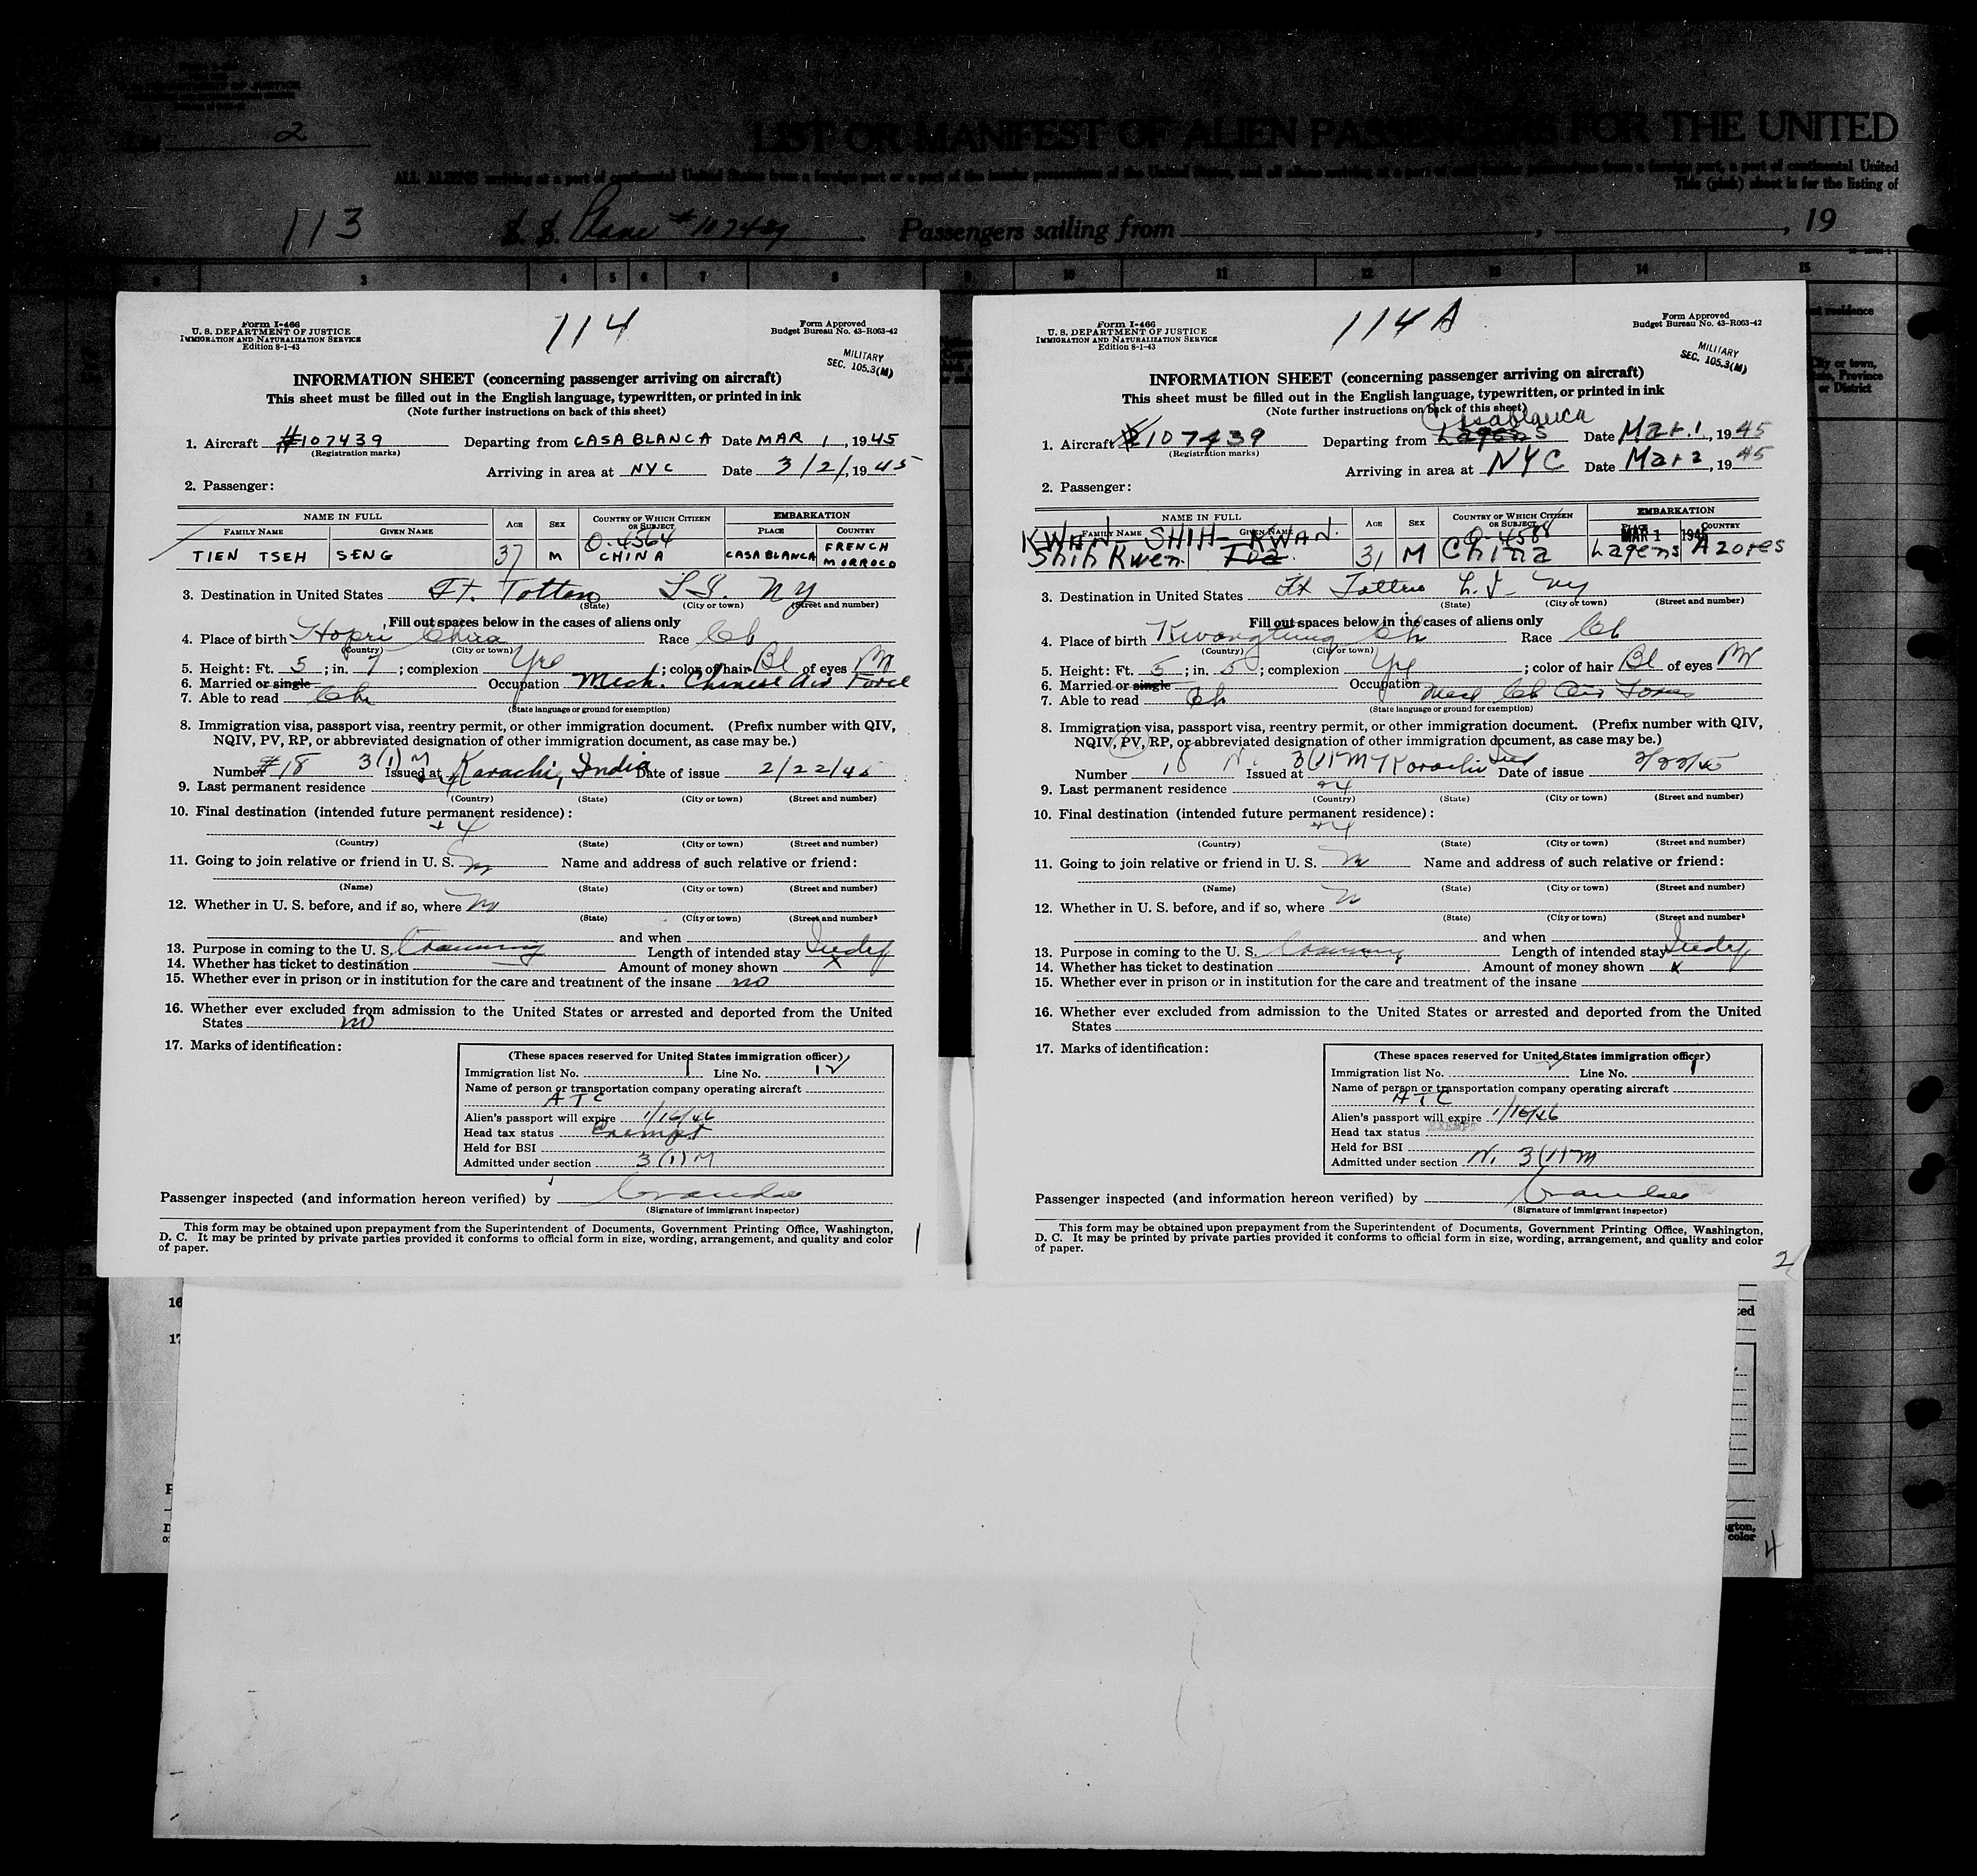 2
LIST OR MANIFEST OF ALIEN PASSENGERS FOR THE UNITED
ALL ALIENS arriving at a port of continental United States from a foreign port or a port of the insular possessions of the United States, and all aliens arriving at a port of said insular possessions from a foreign port, a port of continental United
This (pink) sheet is for the listing of
113
S. S. Plane #107439 Passengers sailing from , , 19
2 3 4 5 6 7 8 9 10 11 12 13 14 15
Form I-466
U. S. DEPARTMENT OF JUSTICE
IMMIGRATION AND NATURALIZATION SERVICE
Edition 8-1-43
114
Form Approved
Budget Bureau No. 43-R063-42
MILITARY
SEC. 105.3(M)
INFORMATION SHEET (concerning passenger arriving on aircraft)
This sheet must be filled out in the English language, typewritten, or printed in ink
(Note further instructions on back of this sheet)
1. Aircraft #107439 Departing from CASABLANCA Date MAR 1, 1945
(Registration marks)
Arriving in area at NYC Date 3/2/, 1945
2. Passenger:
NAME IN FULL AGE SEX COUNTRY OF WHICH CITIZEN OR SUBJECT EMBARKATION
FAMILY NAME GIVEN NAME PLACE COUNTRY
O-4564
TIEN TSEH SENG 37 M CHINA CASABLANCA FRENCH MORROCO
3. Destination in United States Ft. Totten L.I. NY
(State) (City or town) (Street and number)
Fill out spaces below in the cases of aliens only
4. Place of birth Hopei China Race Ch
(Country) (City or town)
5. Height: Ft. 5; in. 7; complexion Yel; color of hair Bl of eyes Br
6. Married or single Occupation Mech. Chinese Air Force
7. Able to read Ch
(State language or ground for exemption)
8. Immigration visa, passport visa, reentry permit, or other immigration document. (Prefix number with QIV,
NQIV, PV, RP, or abbreviated designation of other immigration document, as case may be.)
Number #18 3(1)M Issued at Karachi, India Date of issue 2/22/45
9. Last permanent residence
(Country) (State) (City or town) (Street and number)
10. Final destination (intended future permanent residence):
(Country) (State) (City or town) (Street and number)
11. Going to join relative or friend in U. S. Name and address of such relative or friend:
(Name) (State) (City or town) (Street and number)
12. Whether in U. S. before, and if so, where
(State) (City or town) (Street and number)
and when
13. Purpose in coming to the U. S. Training Length of intended stay Indef
14. Whether has ticket to destination Amount of money shown x
15. Whether ever in prison or in institution for the care and treatment of the insane no
16. Whether ever excluded from admission to the United States or arrested and deported from the United
States no
17. Marks of identification:
(These spaces reserved for United States immigration officer)
Immigration list No. 1 Line No. 12
Name of person or transportation company operating aircraft
ATC
Alien's passport will expire 1/16/46
Head tax status Exempt
Held for BSI
Admitted under section 3(1)M
Passenger inspected (and information hereon verified) by
(Signature of immigrant inspector)
This form may be obtained upon prepayment from the Superintendent of Documents, Government Printing Office, Washington,
D. C. It may be printed by private parties provided it conforms to official form in size, wording, arrangement, and quality and color
of paper.
1
Form I-466
U. S. DEPARTMENT OF JUSTICE
IMMIGRATION AND NATURALIZATION SERVICE
Edition 8-1-43
114 A
Form Approved
Budget Bureau No. 43-R063-42
MILITARY
SEC. 105.3(M)
INFORMATION SHEET (concerning passenger arriving on aircraft)
This sheet must be filled out in the English language, typewritten, or printed in ink
(Note further instructions on back of this sheet)
Casablanca
1. Aircraft #107439 Departing from Lagens Date Mar. 1, 1945
(Registration marks)
Arriving in area at NYC Date Mar 2, 1945
2. Passenger:
NAME IN FULL AGE SEX COUNTRY OF WHICH CITIZEN OR SUBJECT EMBARKATION
FAMILY NAME GIVEN NAME PLACE COUNTRY
KWAN SHIH-KWAN O-4588 MAR 1 1945
Shih Kwen 31 M China Lagens Azores
3. Destination in United States Ft Totten L.I. NY
(State) (City or town) (Street and number)
Fill out spaces below in the cases of aliens only
4. Place of birth Kwangtung Ch Race Ch
(Country) (City or town)
5. Height: Ft. 5; in. 5; complexion Yel; color of hair Bl of eyes Br
6. Married or single Occupation Mech Ch Air Force
7. Able to read Ch
(State language or ground for exemption)
8. Immigration visa, passport visa, reentry permit, or other immigration document. (Prefix number with QIV,
NQIV, PV, RP, or abbreviated designation of other immigration document, as case may be.)
Number 18 N. 3(1)M Issued at Karachi Ind Date of issue 2/22/45
9. Last permanent residence
(Country) (State) (City or town) (Street and number)
10. Final destination (intended future permanent residence):
(Country) (State) (City or town) (Street and number)
11. Going to join relative or friend in U. S. Name and address of such relative or friend:
(Name) (State) (City or town) (Street and number)
12. Whether in U. S. before, and if so, where
(State) (City or town) (Street and number)
and when
13. Purpose in coming to the U. S. Training Length of intended stay Indef
14. Whether has ticket to destination Amount of money shown x
15. Whether ever in prison or in institution for the care and treatment of the insane
16. Whether ever excluded from admission to the United States or arrested and deported from the United
States
17. Marks of identification:
(These spaces reserved for United States immigration officer)
Immigration list No. 2 Line No. 1
Name of person or transportation company operating aircraft
ATC
Alien's passport will expire 1/16/46
Head tax status EXEMPT
Held for BSI
Admitted under section N. 3(1)M
Passenger inspected (and information hereon verified) by
(Signature of immigrant inspector)
This form may be obtained upon prepayment from the Superintendent of Documents, Government Printing Office, Washington,
D. C. It may be printed by private parties provided it conforms to official form in size, wording, arrangement, and quality and color
of paper.
2
residence
City or town,
State, Province
or District
16
17
4